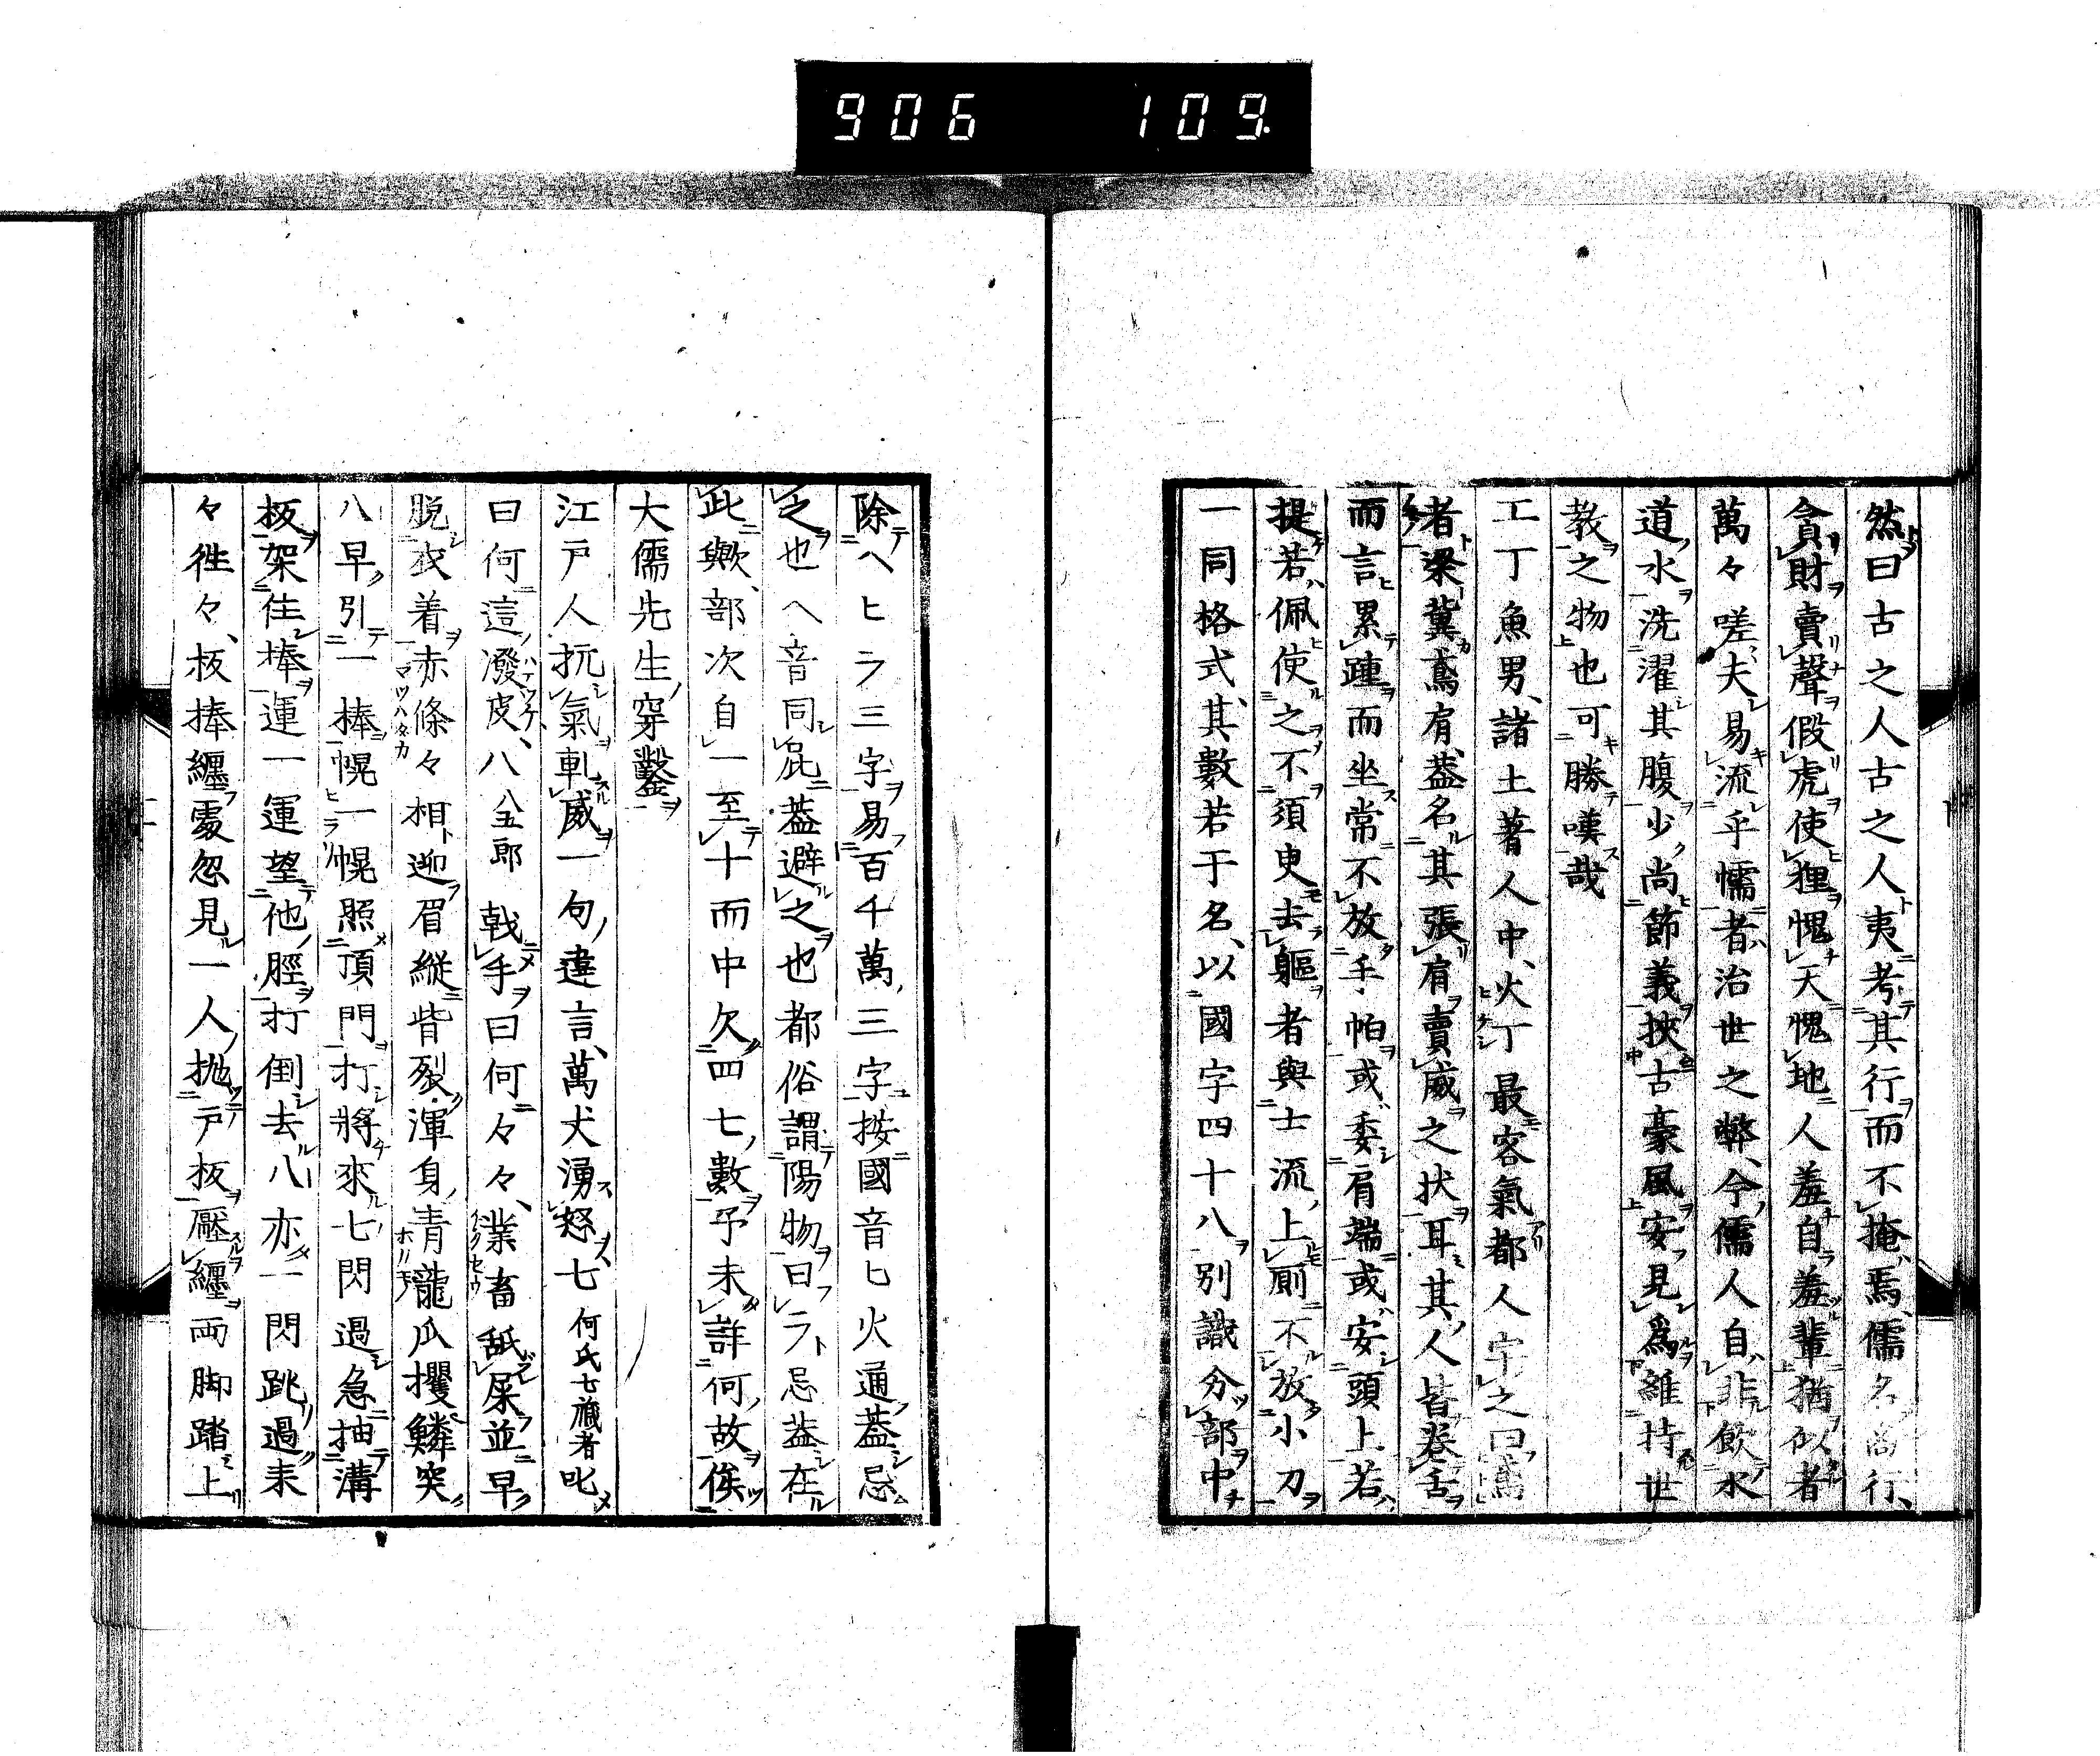 906 109
然曰古之人古之人夷考其行而不掩焉儒名商行
貪財賣聲假虎使狸愧天愧地人羞自羞輩猶似者
萬々嗟夫易流乎懦者治世之弊今儒人自非飲水
道水洗濯其腹少尚節義挾古豪風安見爲維持世
教之物也可勝嘆哉
工丁魚男諸土著人中火丁最客氣都人字之曰鳶
者梁冀鳶肩蓋名其張肩賣威之状耳其人皆卷舌
而言累踵而坐常不放手帕或委肩端或安頭上若
提若佩使之不須臾去軀者與士流上厠不放小刀
一同格式其數若于名以國字四十八別識分部中
除ヘヒラ三字易百千萬三字按國音ヒ火通蓋忌
之也ヘ音同屁蓋避之也都俗謂陽物曰ラ忌蓋在
此歟部次自一至十而中欠四七數予未詳何故俟
大儒先生穿鑿
江戸人抗氣軋威一句違言萬犬湧怒七何氏七藏者叱
曰何這潑皮八八五郎戟手曰何々々業畜舐屎並早
脱衣着赤條々相迎眉縦眥裂渾身青龍爪攫鱗突
八早引一捧幌一幌照頂門打將來七閃過急抽溝
板架住捧運一運望他脛打倒去八亦一閃跳過来
々徃々板捧纏處忽見一人抛戸板壓纏両脚踏上